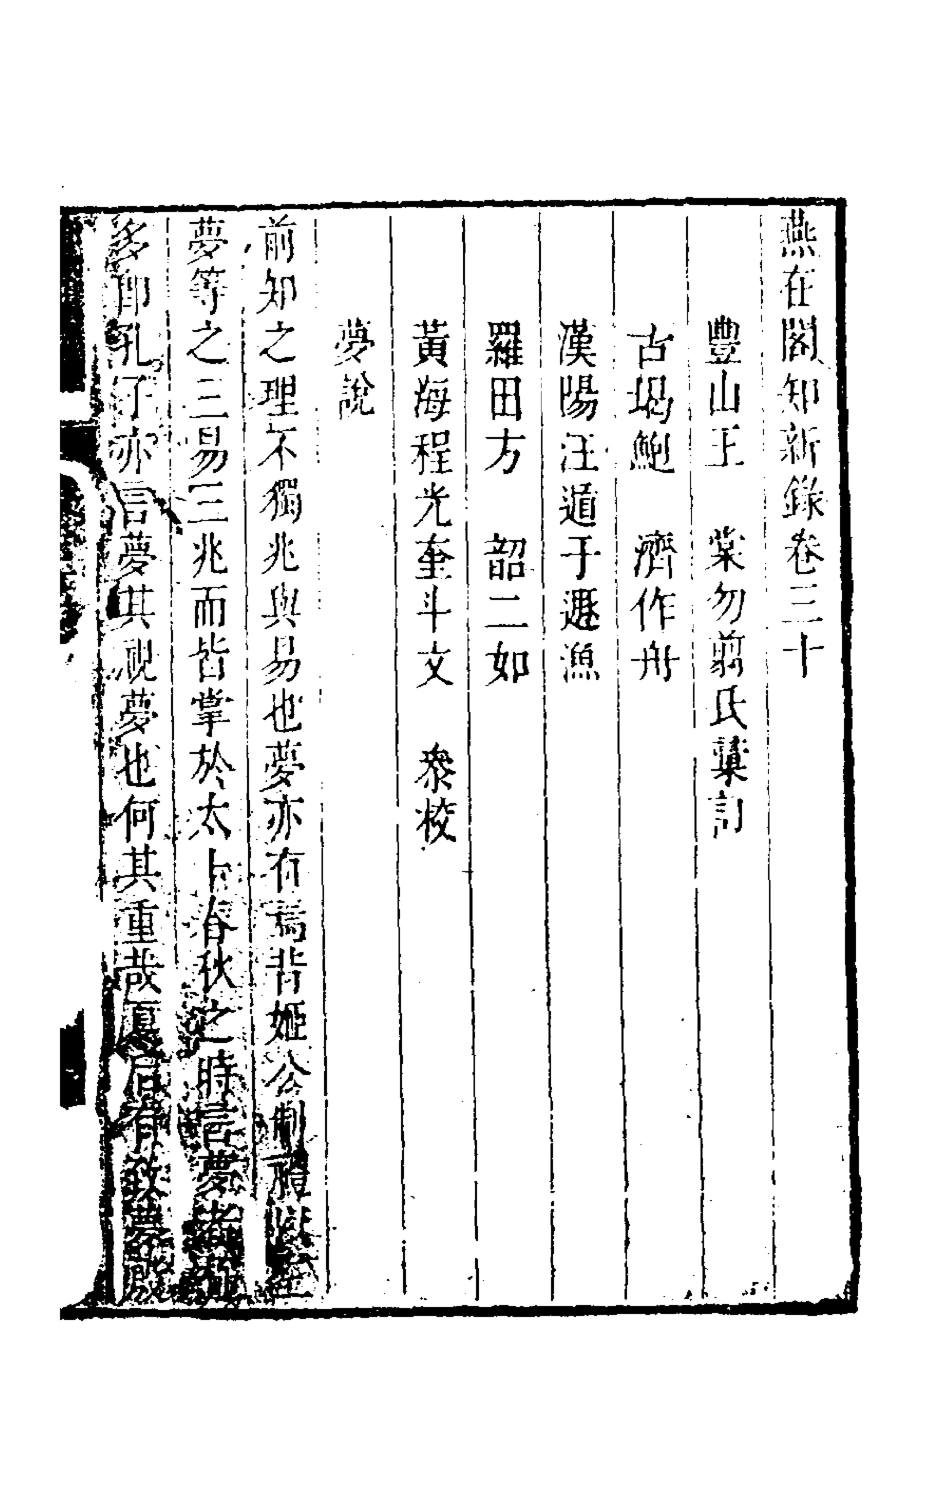 燕在閣知新錄卷三十
豐山王　棠勿翦氏彚訂
古堨鮑　濟作舟
漢陽汪遁于遯漁
羅田方　韶二如
黃海程光奎斗文　衆校
夢說
前知之理不獨兆與易也夢亦有焉昔姬公制禮以
夢等之三易三兆而皆掌於太卜春秋之時言夢
多卽孔子亦言夢其視夢也何其重哉夏后有致夢